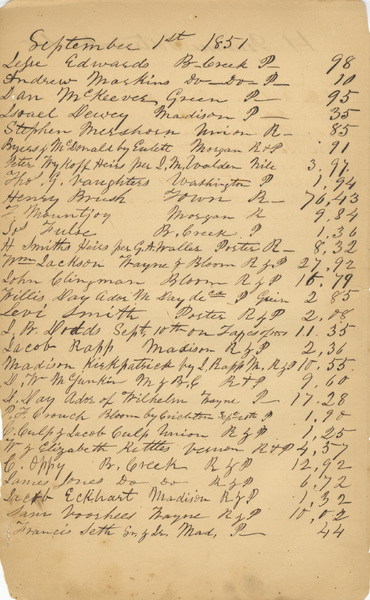 September 1st 1851
Edwards B. Creek P 98
Andrew Mackins Do Do P 10
Dan McKeever Green P 95
Israel Dewey Madison P 35
Stephen Union R 85
Byers & McDonald by Morgan R & P 91
Peter Wykoff Heirs per I. M. Walden Nile 3,97
Thos G. Vaughters Washington P 1,94
Henry Brush Town R 76,43
Mountjoy Morgan R 9,84
Fulse B. Creek P 1,36
H Smiths Heirs per G. A. Waller Porter R 8,32
Wm Jackson Wayne & Bloom R & P 27,92
John Clingman Bloom R & P 16,79
Willis Day Ador M Day P 2 85
Levi Smith Porter R & P 2,08
I. W. Dodds Sept. 10th on 11.35
Jacob Rapp Madison R & P 2,36
Madison Kirkpatrick by I. Rapp M, R & P 10.55
D. W. McGunkin M & B, C R & P 9,60
D. Day Ador of Wilhelm Wayne P 17.28
Crouch Bloom by P 1,90
Culp & Jacob Culp Union R & P 1,25
W & Elizabeth Kittles Vernon R & P 4,57
C. Oppy B. Creek R & P 12,92
James Jones Do Do R & P 6,72
Jacob Eckhart Madison R & P 1,32
Saml Voorhees Wayne R & P 10,02
Francis Seth Sr. & Jr. Mad, P 44